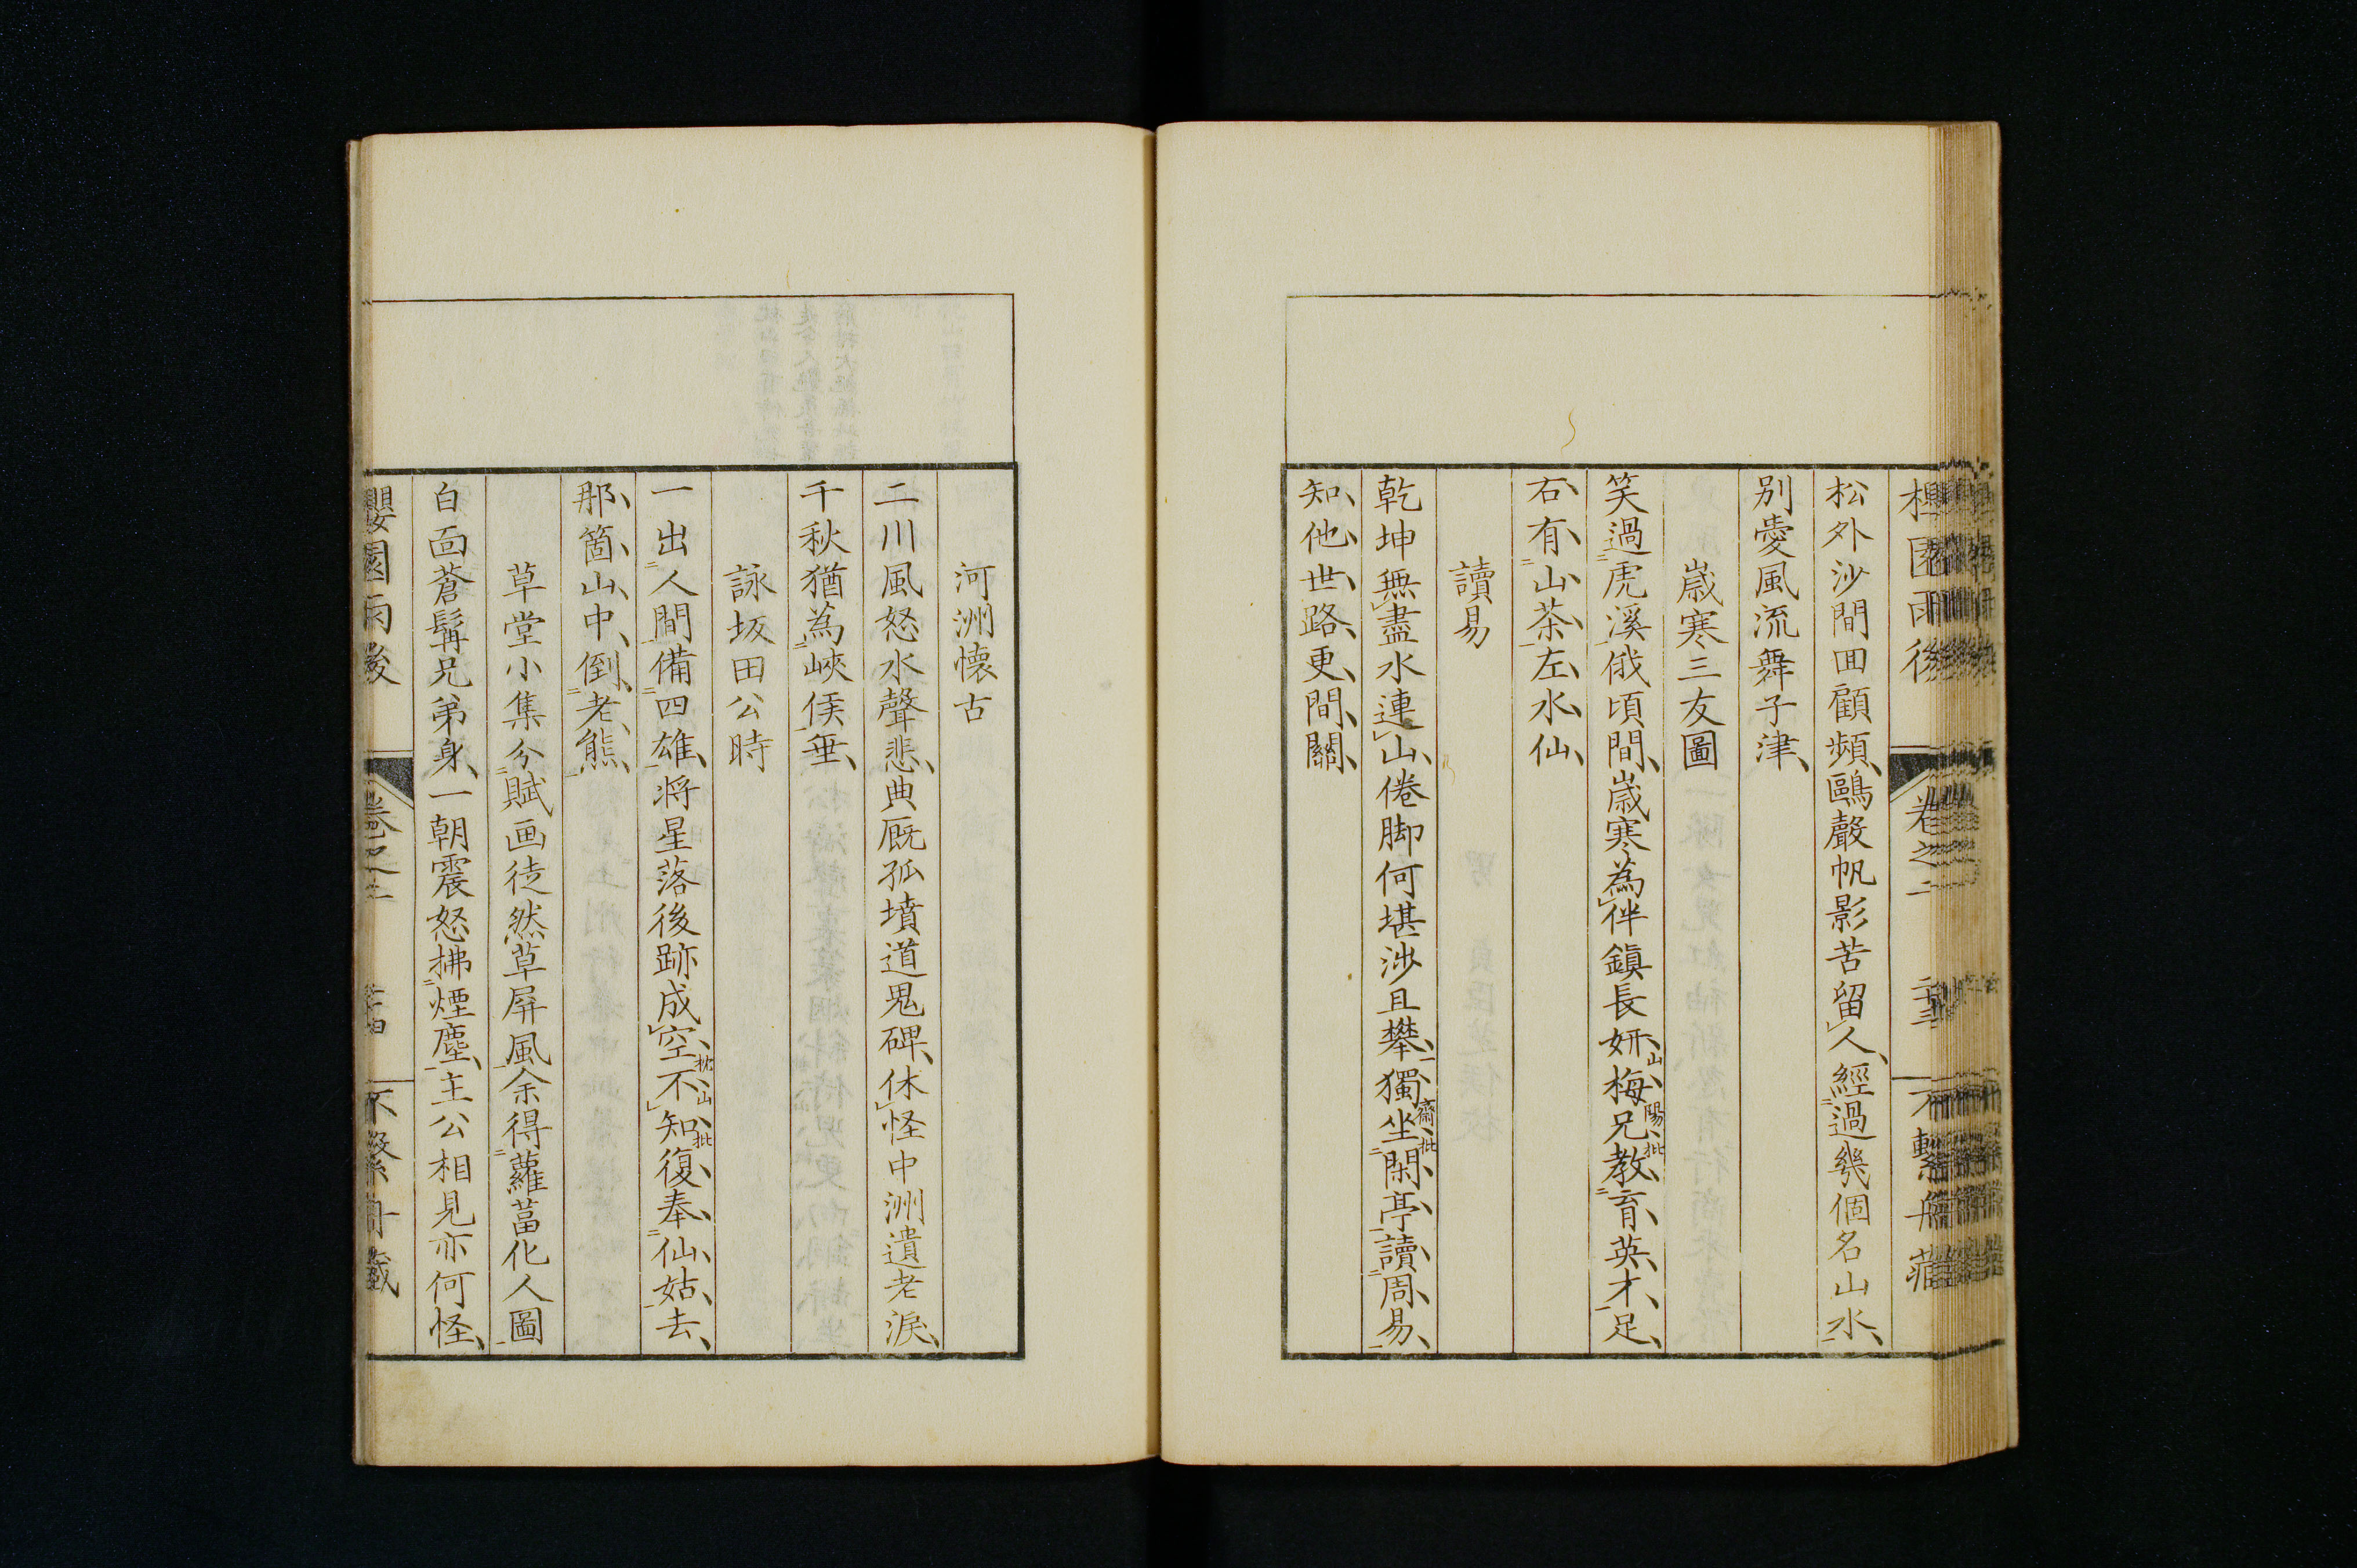 松外沙間回顧頻鷗聲帆影苦留人經過幾個名山水
別愛風流舞子津
歲寒三友圖
笑過虎溪俄頃間歲寒為伴鎮長妍梅兄教育英才足
山陽批
右有山茶左水仙
讀易
乾坤無盡水連山倦脚何堪涉且攀獨坐閑亭讀周易
一齋批
知他世路更間關
河洲懷古
二川風怒水聲悲典厩孤墳道鬼碑休怪中洲遺老淚
千秋猶為峽侯垂
詠坂田公時
一出人間備四雄將星落後跡成空不知復奉仙姑去
枕山批
那箇山中倒老熊
草堂小集分賦画徒然草屏風余得蘿葍化人圖
白面蒼髯兄弟身一朝震怒拂煙塵主公相見亦何怪